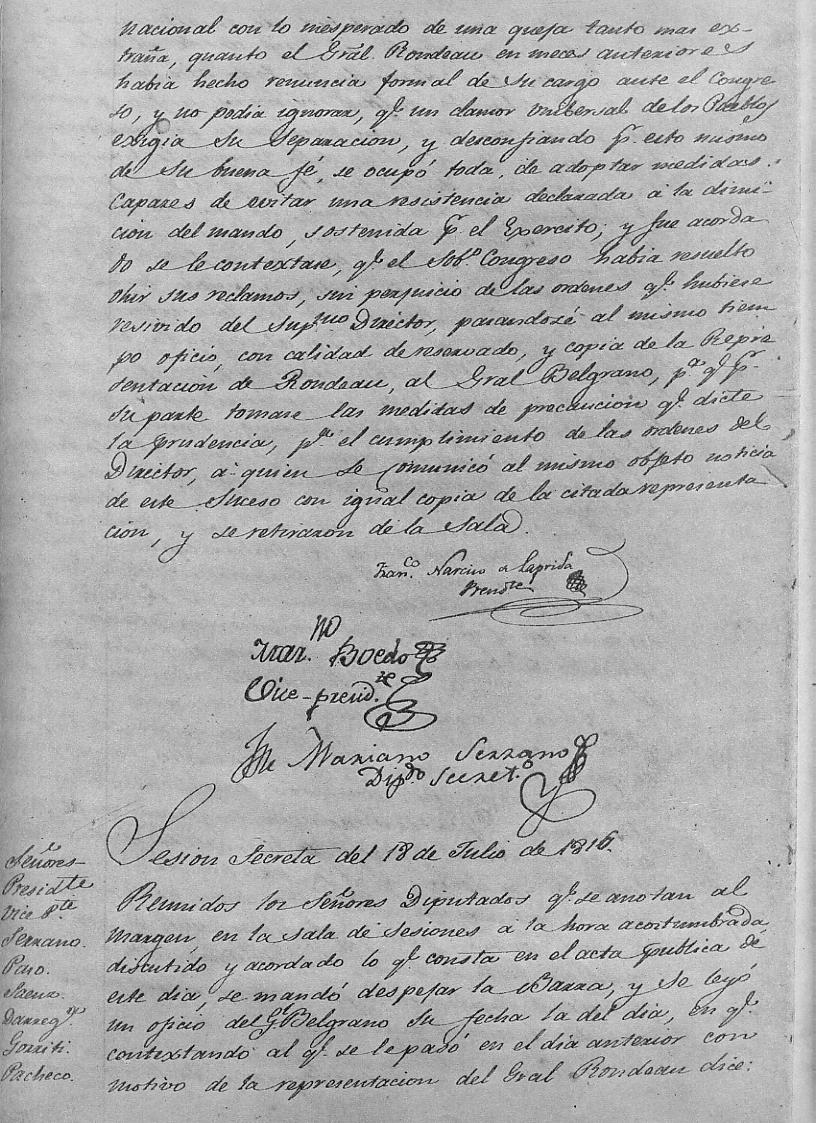 nacional con lo inesperado de una queja tanto mas ex-
traña, quanto el Gral. Rondeau en meces anteriores
habia hecho renuncia formal de su cargo ante el Congre-
so, y no podia ignorar, qe. un clamor universal de los Pueblos
exigia su separacion, y desconfiando pr. esto mismo
de su buena fé, se ocupó toda, de adoptar medidas
capazes de evitar una resistencia declarada á la dimi-
cion del mando, sostenida pr. el Exercito; y fue acorda
do se le contextase, qe. el Sobo. Congreso habia resuelto
ohir sus reclamos, sin perjuicio de las ordenes qe. hubiese
resivido del Supmo Director, pasandosé al mismo tiem
po oficio, con calidad de reservado, y copia de la Repre
sentación de Rondeau, al Gral Belgrano, pa. qe. pr.
su parte tomase las medidas de precaucion qe. dicte
la prudencia, pa. el cumplimiento de las ordenes del
Director, a quien se comunicó al mismo objeto noticia
de este suceso con igual copia de la citada representa
ción, y se retiraron de la Sala.
Franco. Narciso de Laprida
Presdte
Marno. Boedo
Vice-presid.te
Je Mariano Serrano
Dipdo Secreto.
Sesion Secreta del 18 de Julio de 1816.
Señores
Presidte
Vice Pte
Serrano.
Paso.
Saenz.
Darreg.
Gorriti.
Pacheco.
Reunidos los Señores Diputados qe. se anotan al
margen, en la sala de sesiones á la hora acostumbrada,
discutido y acordado lo qe. consta en el acta publica de
este dia, se mandó despejar la Barra, y se leyó
un oficio del Gl. Belgrano su fecha la del dia, en qe.
contextando al qe. se le pasó en el dia anterior con
motivo de la representacion del Gral Rondeau dice: